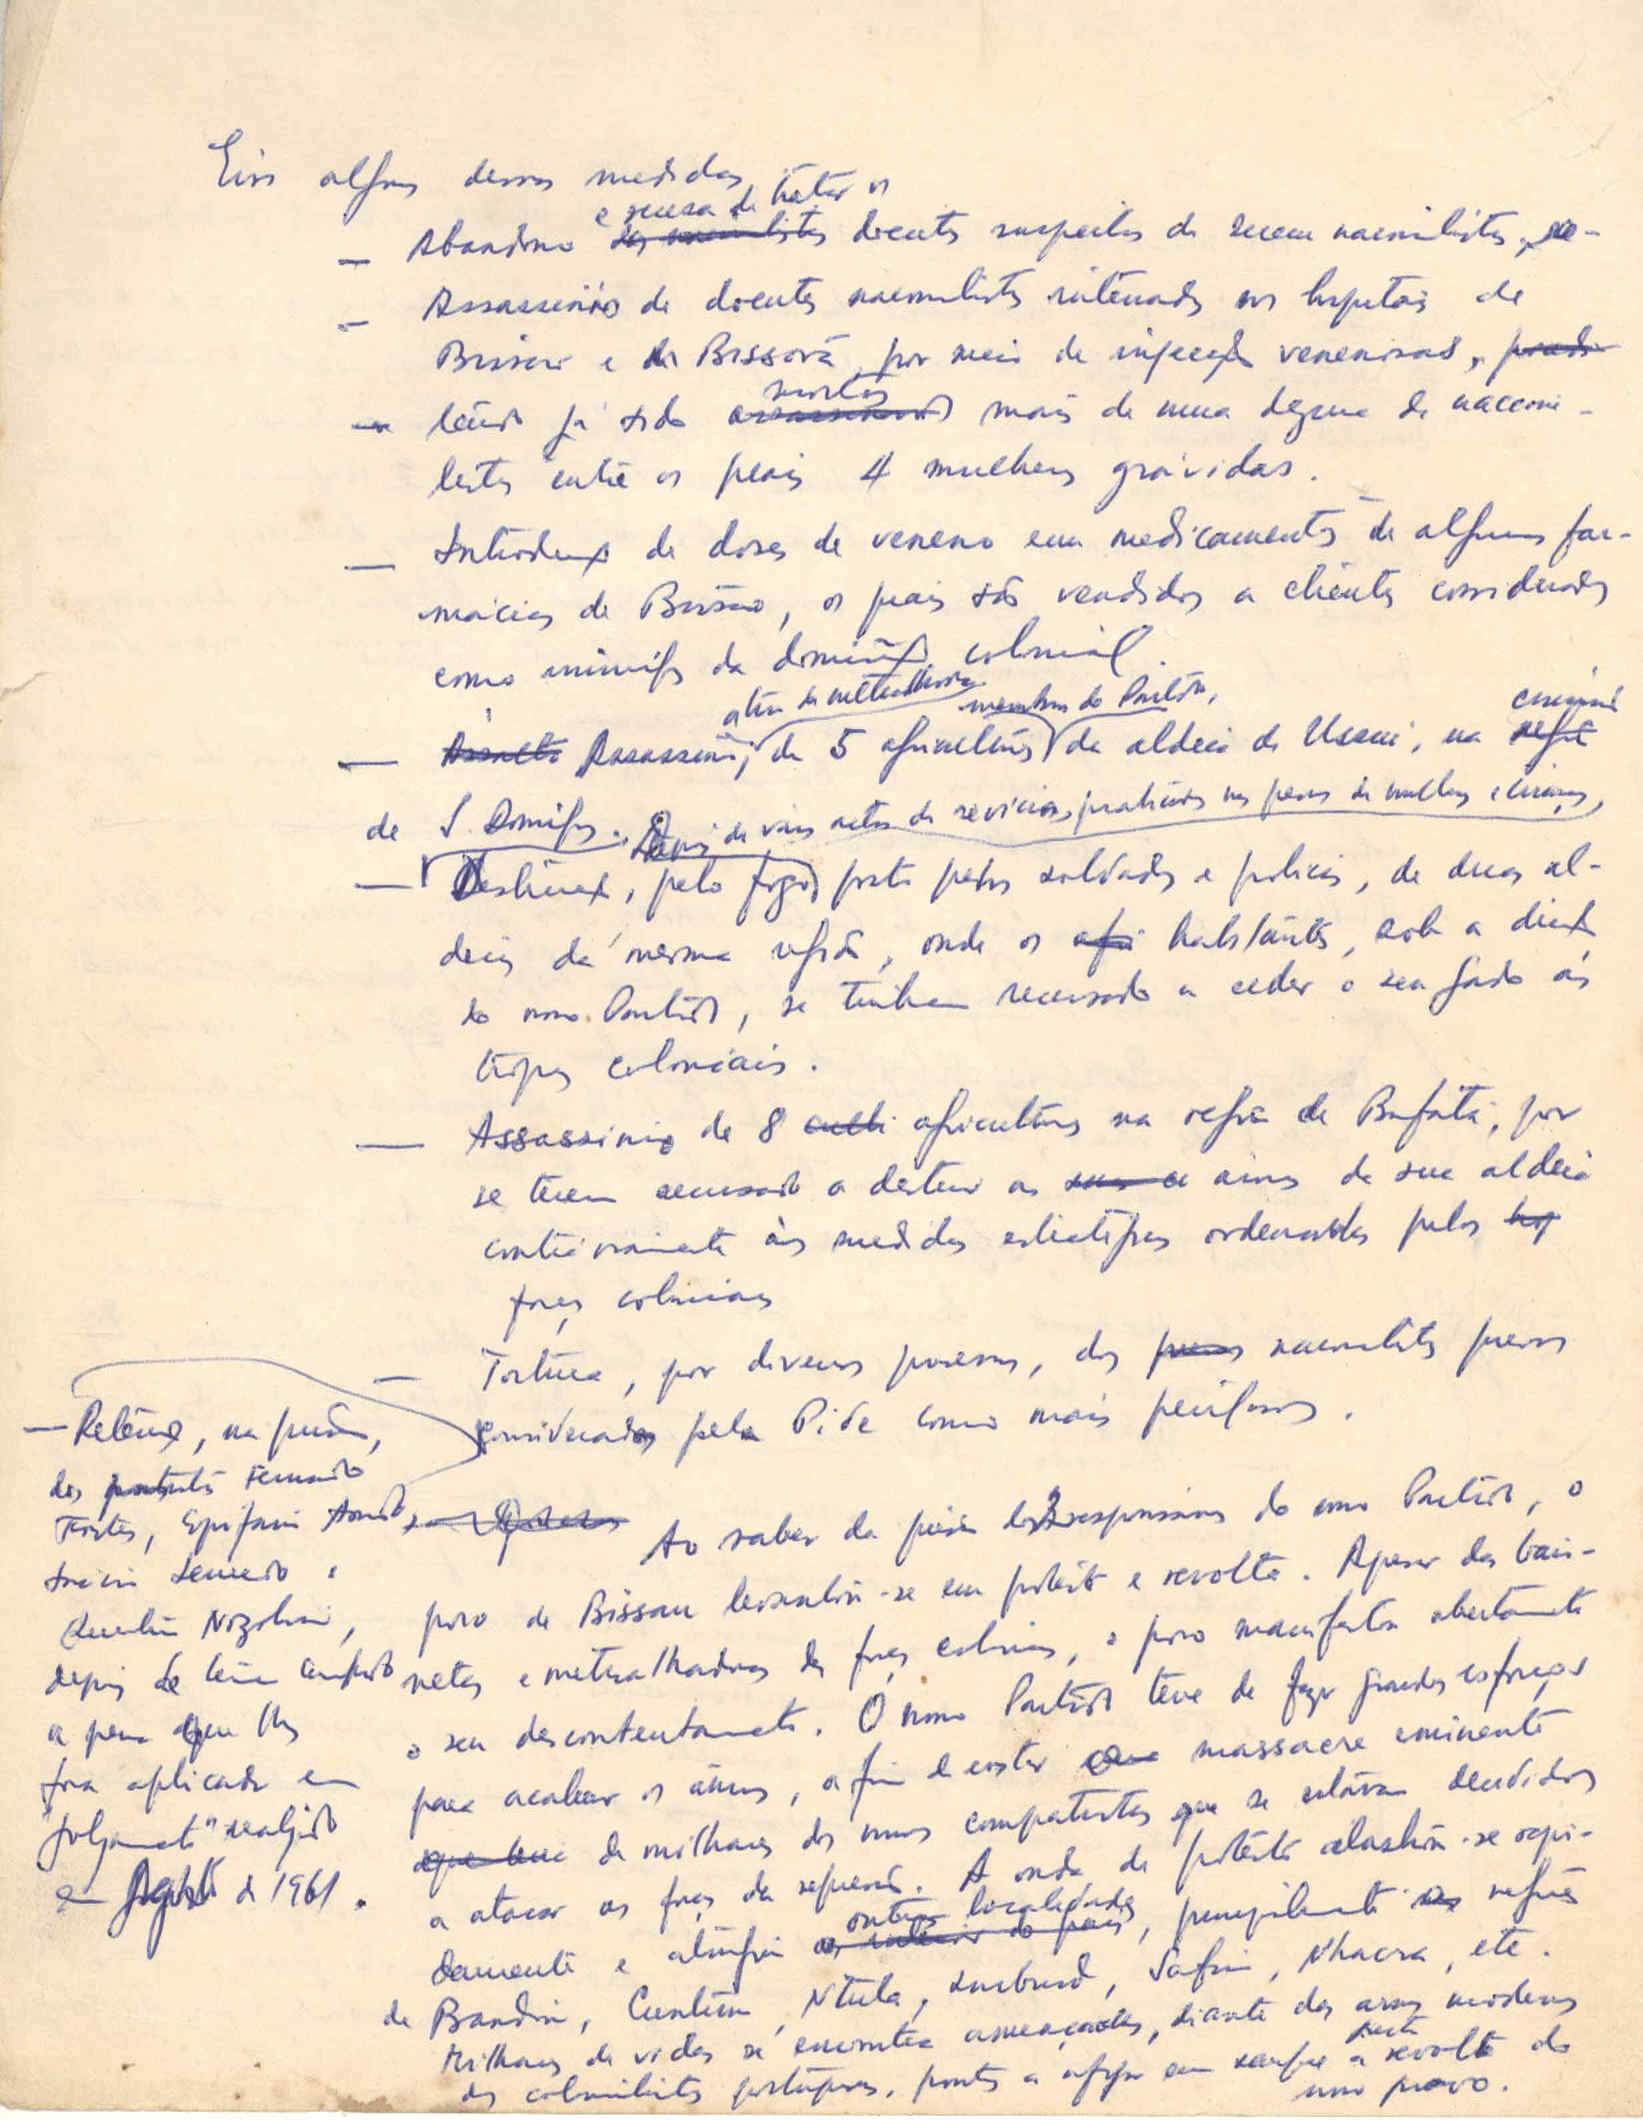 Eis algumas dessas medidas
e recusa de tratar os
— Abandono dos nacionalistas doentes suspeitos de serem nacionalistas,
— Assassínio de doentes nacionalistas internados nos hospitais de
Bissau e de Bissorã, por meio de injecções venenosas,
mortos
— tendo já sido assassinados mais de uma dezena de naciona-
listas entre os quais 4 mulheres grávidas.
— Introdução de doses de veneno em medicamentos de algumas far-
mácias de Bissau, os quais são vendidos a clientes considerados
como inimigos da dominação colonial.
a tiro de metralhadora membros do Partido,
— Assalto Assassínio, de 5 agricultores da aldeia de Ussui, na
de S. Domingos. Depois de vários actos de sevícias, praticados nas pessoas de mulheres e crianças,
— Destruição, pelo fogo posto pelos soldados e polícias, de duas al-
deias da mesma região, onde os habitantes, sob a direcção
do nosso Partido, se tinham recusado a ceder o seu gado às
tropas coloniais.
— Assassínio de 8 agricultores na região de Bafatá, por
se terem recusado a destruir as da sua aldeia
contrariamente às medidas ordenadas pelas
forças coloniais
— Tortura, por diversos processos, dos presos nacionalistas presos
considerados pela Pide como mais perigosos.
— Retenção, na prisão,
dos patriotas Fernando
Fortes, Epifânio Amado,
Inácio Semedo e
Quintino Nozolini,
depois de terem cumprido
a pena que lhes
fora aplicada em
"julgamento" realizado
em Agosto de 1961.
Ao saber da prisão dos 3 responsáveis do nosso Partido, o
povo de Bissau levantou-se em protesto e revolta. Apesar das baio-
netas e metralhadoras das forças coloniais, o povo manifestou abertamente
o seu descontentamento. O nosso Partido teve de fazer grandes esforços
para acalmar os ânimos, a fim de evitar massacre eminente
de milhares dos nossos compatriotas que se estavam decididos
a atacar as forças da repressão. A onda de protesto alastrou-se rapi-
outras localidades
damente e atingiu o interior do país, principalmente as regiões
de Brandão, Cuntum, Ntula, Safim, Nhacra, etc.
Milhares de vidas se encontram ameaçadas, diante das armas modernas
dos colonialistas portugueses, prontos a afogar em sangue a justa revolta do
nosso povo.